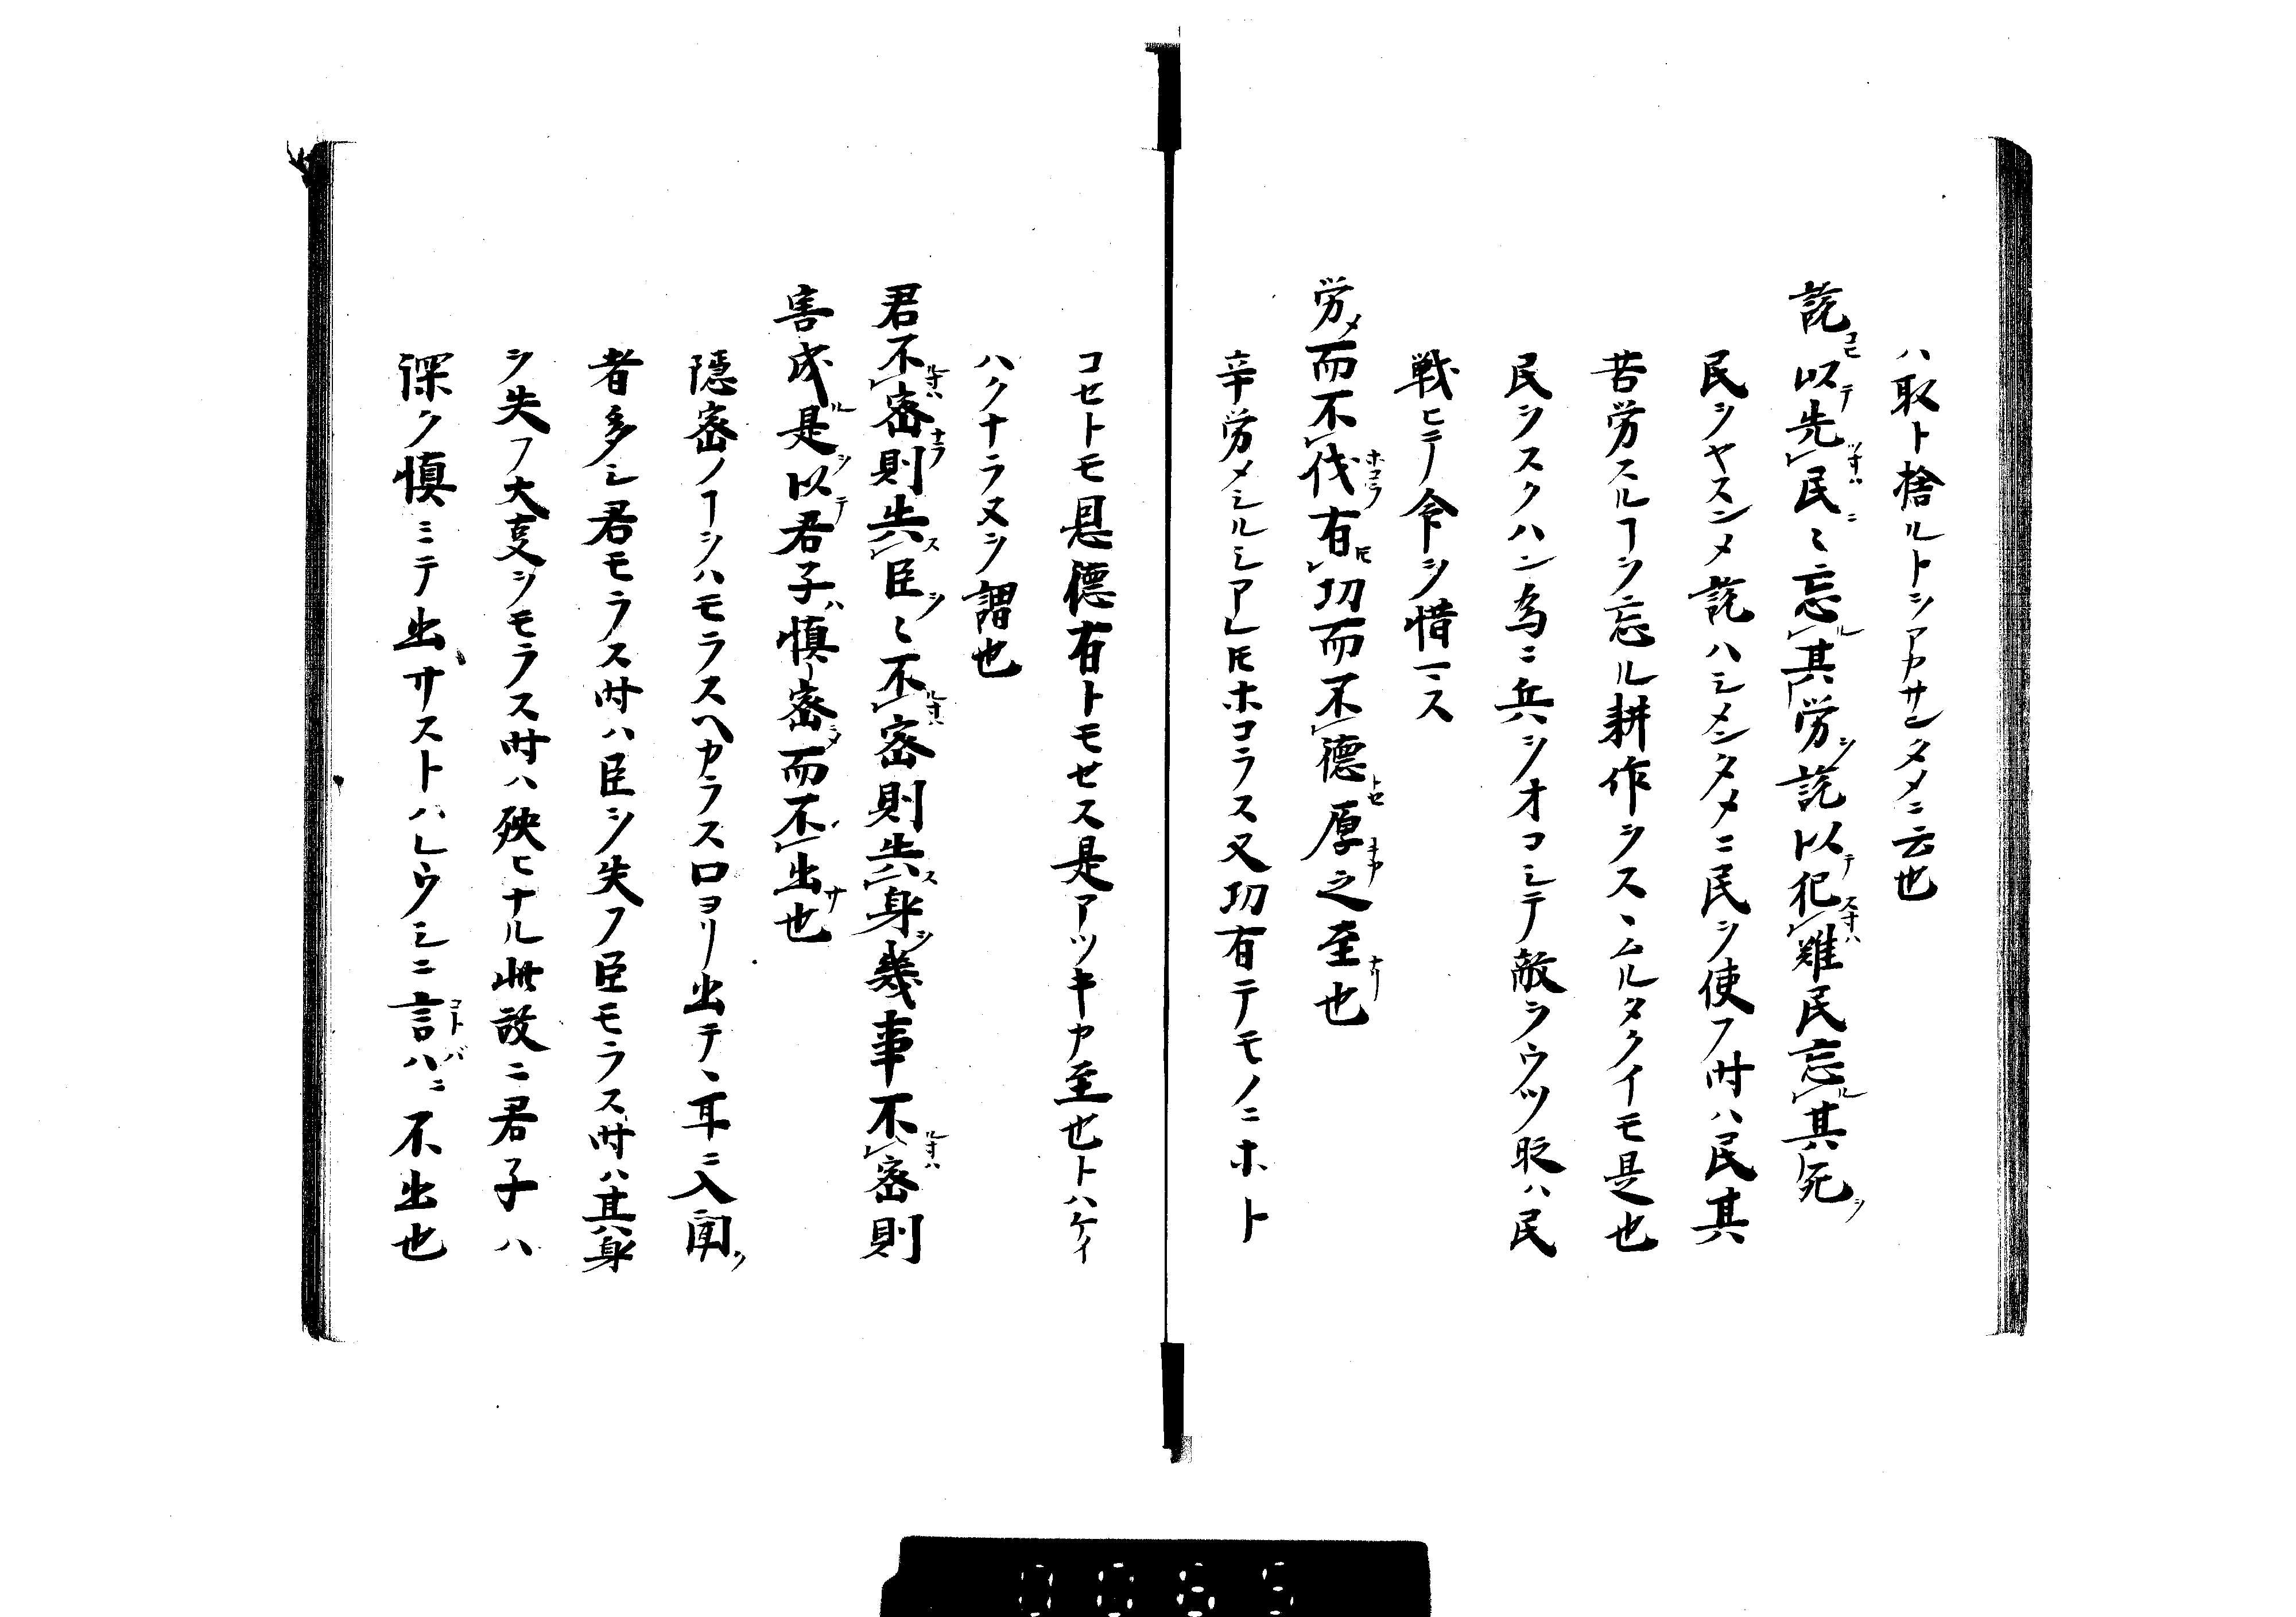 ハ取ト捨ルトヲアカサンタメニ云也
説以テ先民ニミ忘ル其労ヲ説以テ犯難民忘ル其死ヲ
民ヲヤスンメ説ハシメンタメニ民ヲ使フ时ハ民其
苦労スルヿヲ忘ル耕作ヲスヽムルタクイモ是也
民ヲスクハン為ニ兵ヲオコシテ敵ヲウツ时ハ民
戦ヒテ命ヲ惜マス
労メ而不伐ホコラ有𪜈切而不德トセ厚キヤ之至ナリ也
辛労メシルシアレ𪜈ホコラス又功有テモノニホト
コセトモ恩德有トモセス是アツキヤ至也トハケイ
ハクナラヌヲ謂也
君不密ナラ則失ス臣ヲミ不密則失ス身ヲ幾事不密則
害成ル是ヲ以テ君子ハ慎密メ而不出サ也
隠密ノヿヲハモラスヘカラス口ヨリ出テヽ耳ニ入聞ツ
者多シ君モラス时ハ臣ヲ失フ臣モラス时ハ其身
ヲ失フ大事ヲモラス时ハ殃ヒナル此故ニ君子ハ
深ク慎ミテ出サストハレウシニ言ハニ不出也